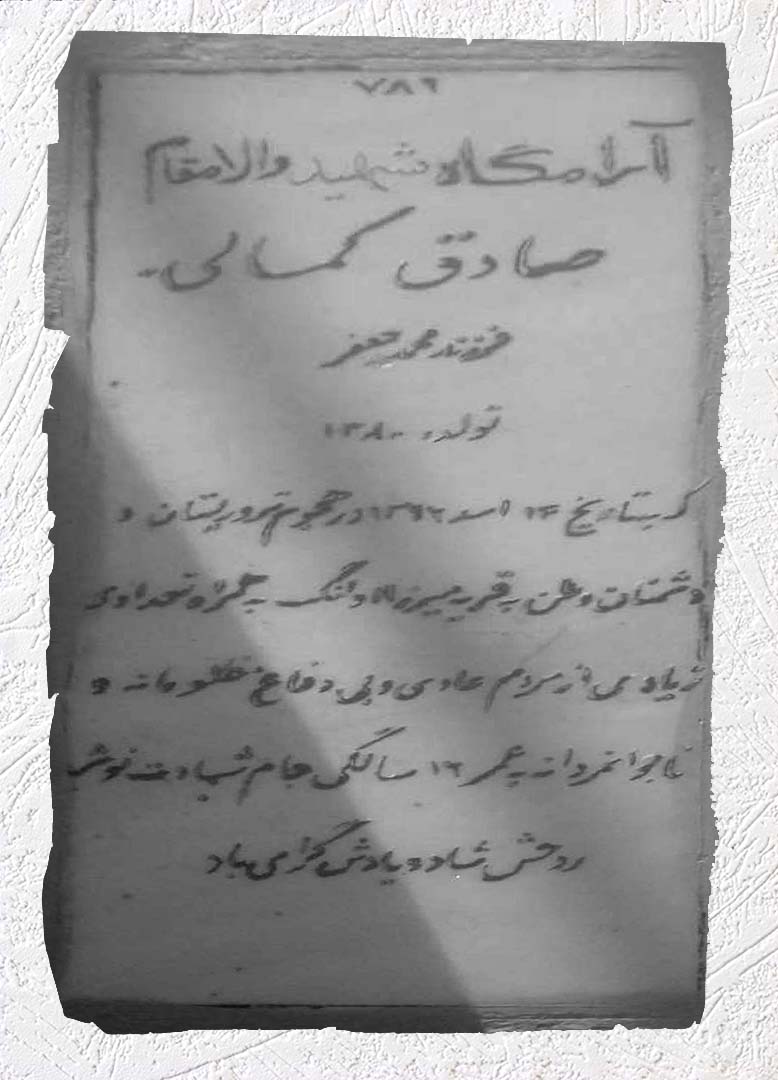 ۷۸۶
آرامگاه شهید والامقام
صادق کمالی
فرزند محمد جعفر
تولد: ۱۳۸۰
که بتاریخ ۱۴ اسد ۱۳۹۶ در هجوم تروریستان و
دشمنان وطن به قریه میرزا اولنگ به همراه تعدادی
زیادی از مردم عادی و بی دفاع مظلومانه و
ناجوانمردانه به عمر ۱۶ سالگی جام شهادت نوشید
روحش شاد و یادش گرامی باد